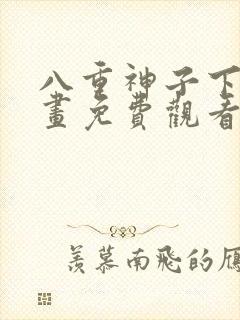 八重神子下
畫免費觀看
羨慕南飛的雁